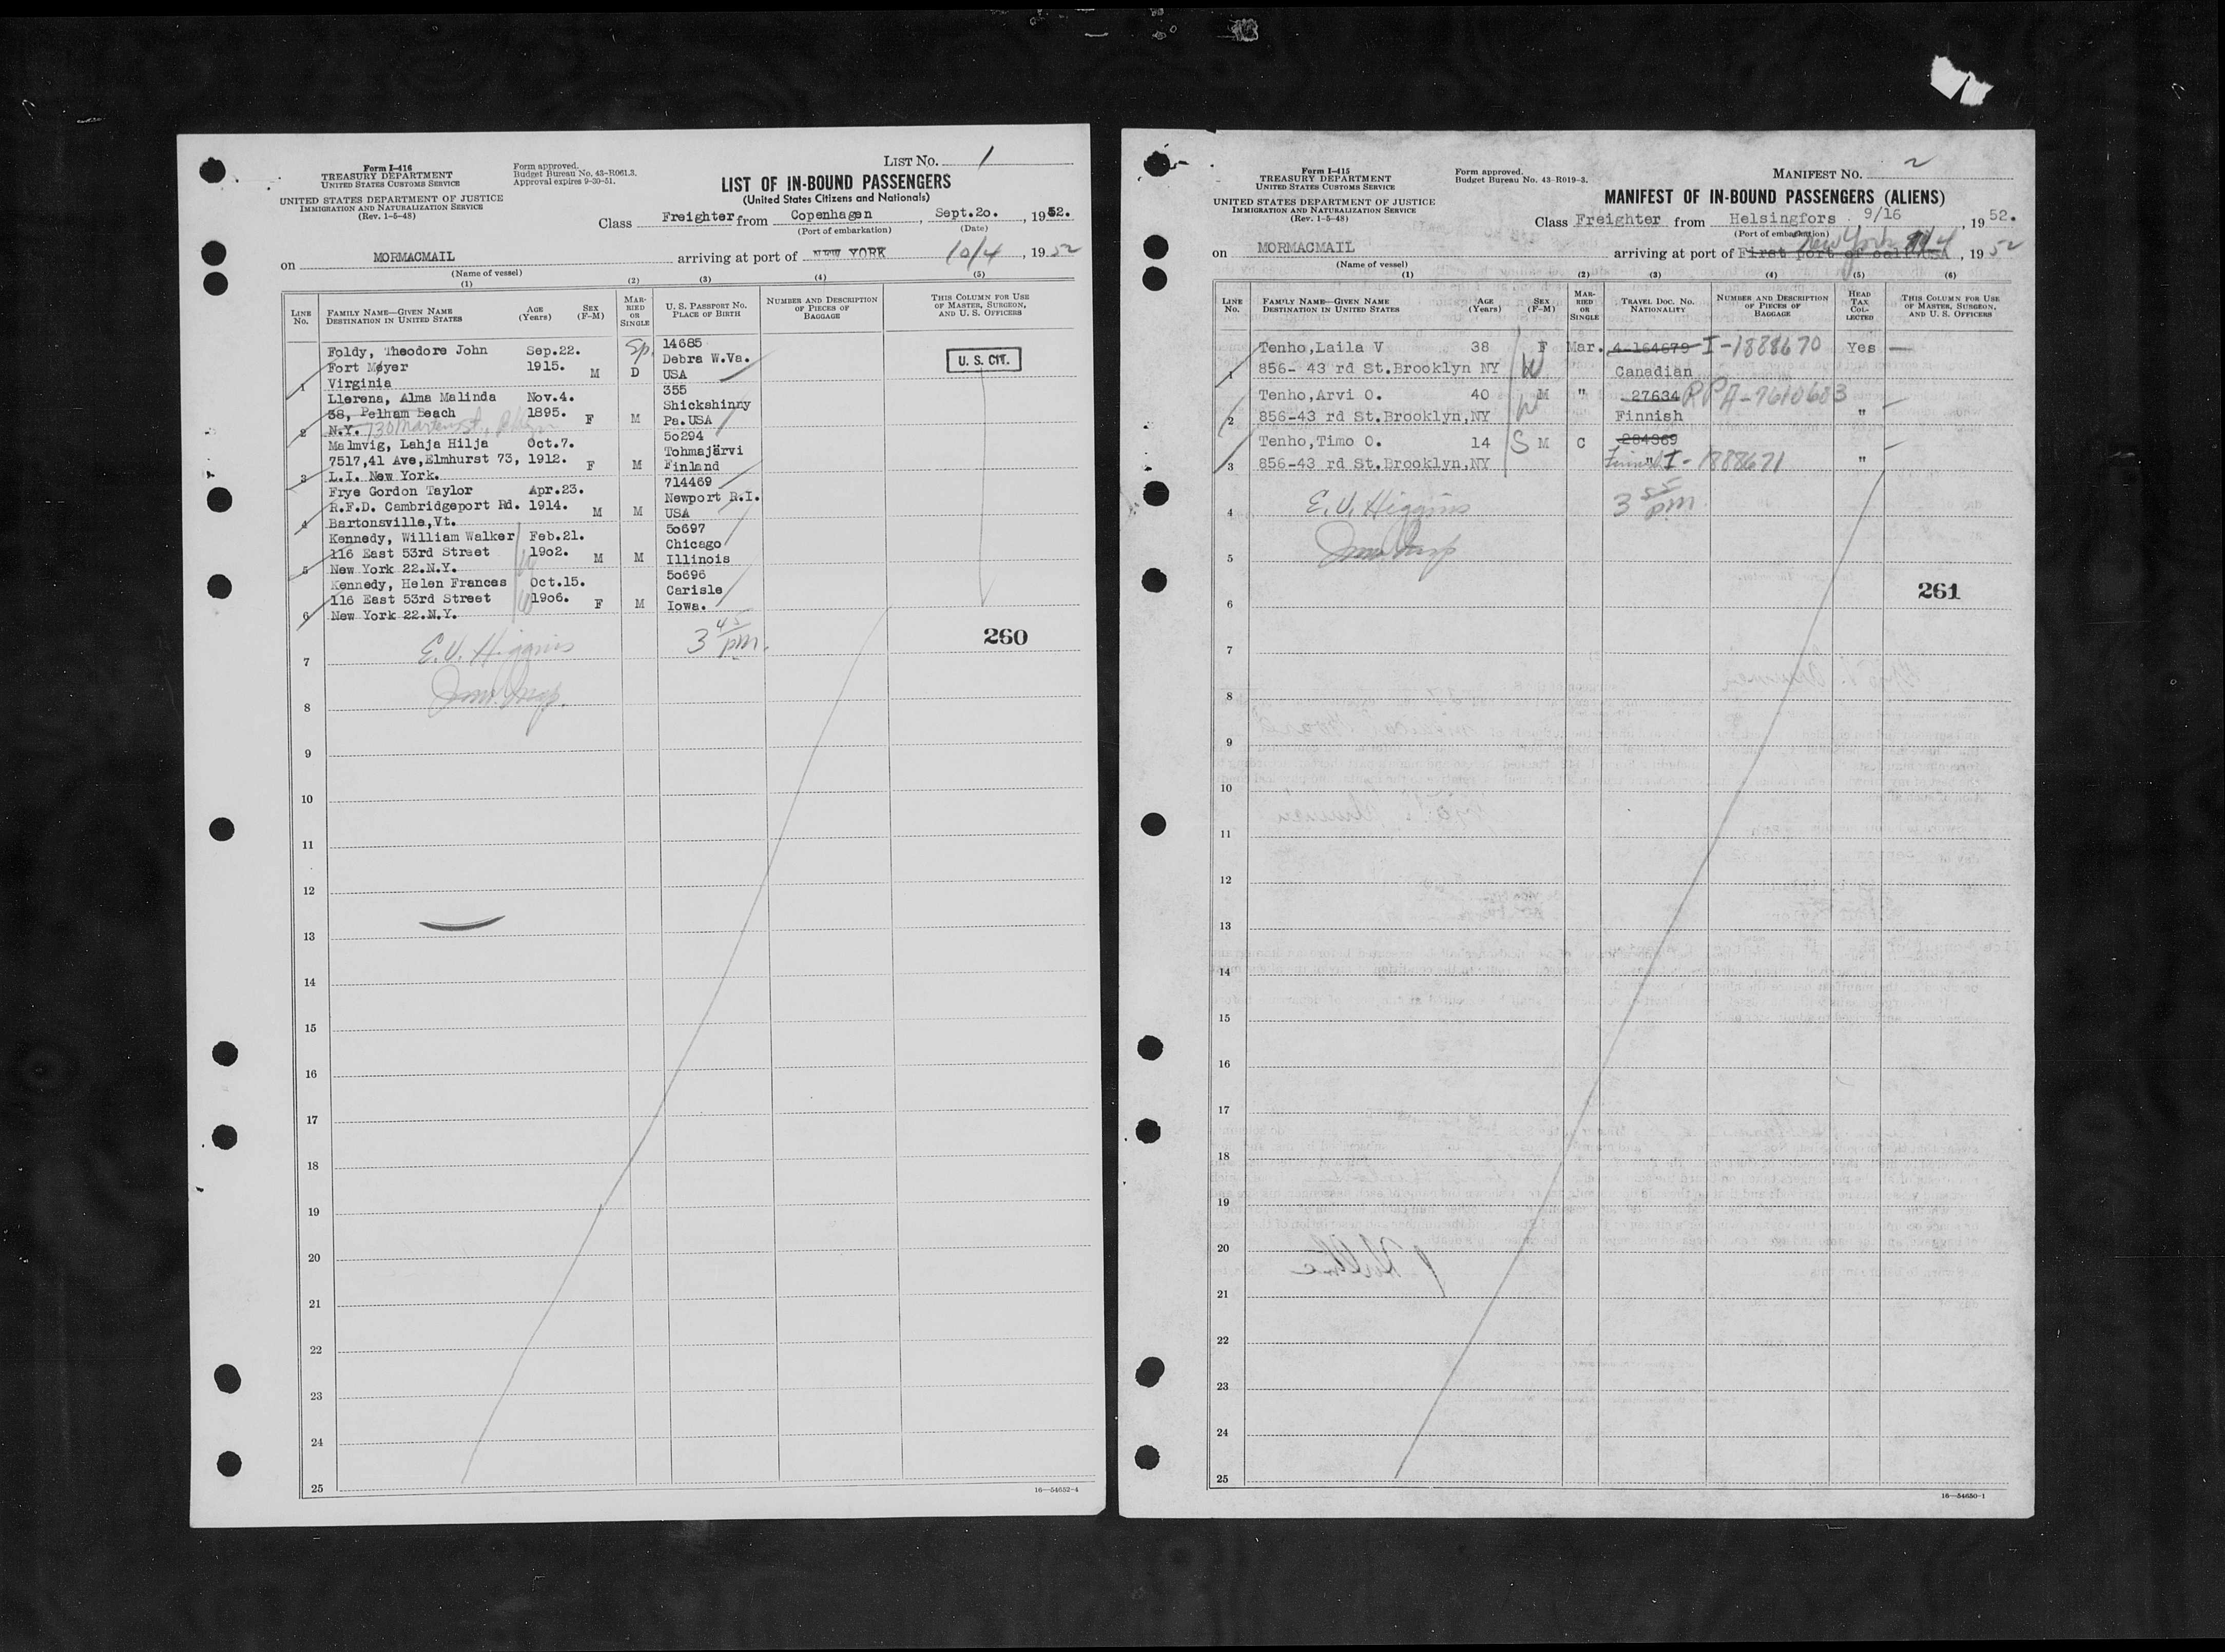 LIST NO. 1
Form I-416
TREASURY DEPARTMENT
UNITED STATES CUSTOMS SERVICE
UNITED STATES DEPARTMENT OF JUSTICE
IMMIGRATION AND NATURALIZATION SERVICE
(Rev. 1-5-48)
Form approved.
Budget Bureau No. 43-R061.3.
Approval expires 9-30-51.
LIST OF IN-BOUND PASSENGERS
(United States Citizens and Nationals)
Class Freighter from Copenhagen, Sept.2o., 1952.
(Port of embarkation) (Date)
on MORMACMAIL arriving at port of NEW YORK 10/4, 1952
(Name of vessel)
(1) (2) (3) (4) (5)
LINE No. FAMILY NAME—GIVEN NAME DESTINATION IN UNITED STATES AGE (Years) SEX (F-M) MARRIED OR SINGLE U. S. PASSPORT NO. PLACE OF BIRTH NUMBER AND DESCRIPTION OF PIECES OF BAGGAGE THIS COLUMN FOR USE OF MASTER, SURGEON, AND U. S. OFFICERS
14685
Foldy, Theodore John Sep.22. Sp. Debra W.Va. U. S. CIT.
Fort Møyer 1915. M D USA
1 Virginia
355
Llerena, Alma Malinda Nov.4. Shickshinny
38, Pelham Beach 1895. F M Pa.USA
2 N.Y. 730
5o294
Malmvig, Lahja Hilja Oct.7. Tohmajärvi
7517,41 Ave,Elmhurst 73, 1912. F M Finland
3 L.I. New York.
714469
Frye Gordon Taylor Apr.23. Newport R.I.
R.F.D. Cambridgeport Rd. 1914. M M USA
4 Bartonsville,Vt.
5o697
Kennedy, William Walker Feb.21. Chicago
116 East 53rd Street 19o2. M M Illinois
5 New York 22.N.Y.
5o696
Kennedy, Helen Frances Oct.15. Carisle
116 East 53rd Street 19o6. F M Iowa.
6 New York 22.N.Y.
E.V. Higgins 3 45 pm. 260
7
8
9
10
11
12
13
14
15
16
17
18
19
20
21
22
23
24
25
16—54652-4
MANIFEST NO. 2
Form I-415
TREASURY DEPARTMENT
UNITED STATES CUSTOMS SERVICE
UNITED STATES DEPARTMENT OF JUSTICE
IMMIGRATION AND NATURALIZATION SERVICE
(Rev. 1-5-48)
Form approved.
Budget Bureau No. 43-R019-3.
MANIFEST OF IN-BOUND PASSENGERS (ALIENS)
Class Freighter from Helsingfors 9/16, 1952.
(Port of embarkation)
New York
on MORMACMAIL arriving at port of First port of call USA, 1952
(Name of vessel)
(1) (2) (3) (4) (5) (6)
LINE No. FAMILY NAME—GIVEN NAME DESTINATION IN UNITED STATES AGE (Years) SEX (F-M) MARRIED OR SINGLE TRAVEL DOC. NO. NATIONALITY NUMBER AND DESCRIPTION OF PIECES OF BAGGAGE HEAD TAX COLLECTED THIS COLUMN FOR USE OF MASTER, SURGEON, AND U. S. OFFICERS
Tenho,Laila V 38 F Mar. 4-164679 I-1888670 Yes —
1 856- 43 rd St.Brooklyn NY W Canadian
Tenho,Arvi O. 40 M " 27634 RP A-7610603
2 856-43 rd St.Brooklyn,NY W Finnish "
Tenho,Timo O. 14 S M C 284369
3 856-43 rd St.Brooklyn,NY " I-1888671 "
4 E.V. Higgins 3 55 pm
5
261
6
7
8
9
10
11
12
13
14
15
16
17
18
19
20
21
22
23
24
25
16—54650-1